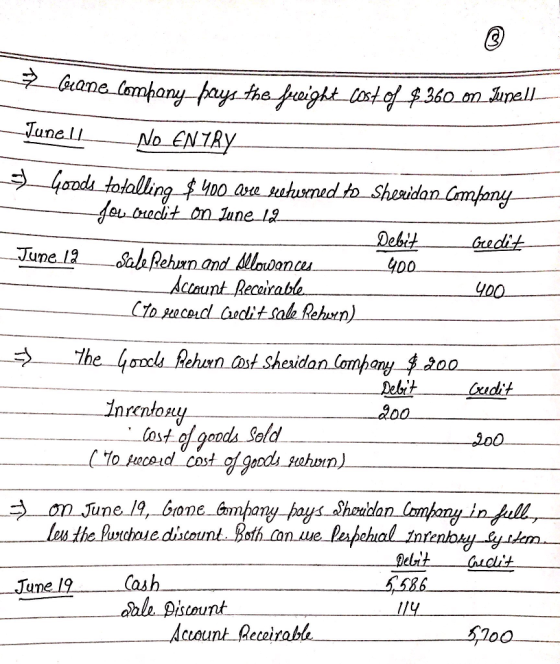 ③
⇒ Crane Company pays the freight cost of $360 on June 11
June 11 No ENTRY
⇒ Goods totalling $400 are returned to Sheridan Company
for credit on June 12
Debit Credit
June 12 Sale Return and Allowances 400
Account Receivable 400
(To record Credit sale Return)
⇒ The Goods Return Cost Sheridan Company $200
Debit Credit
Inventory 200
Cost of goods Sold 200
(To record cost of goods return)
⇒ on June 19, Crane Company pays Sheridan Company in full,
less the Purchase discount. Both can use Perpetual Inventory System.
Debit Credit
June 19 Cash 5,586
Sale Discount 114
Account Receivable 5,700